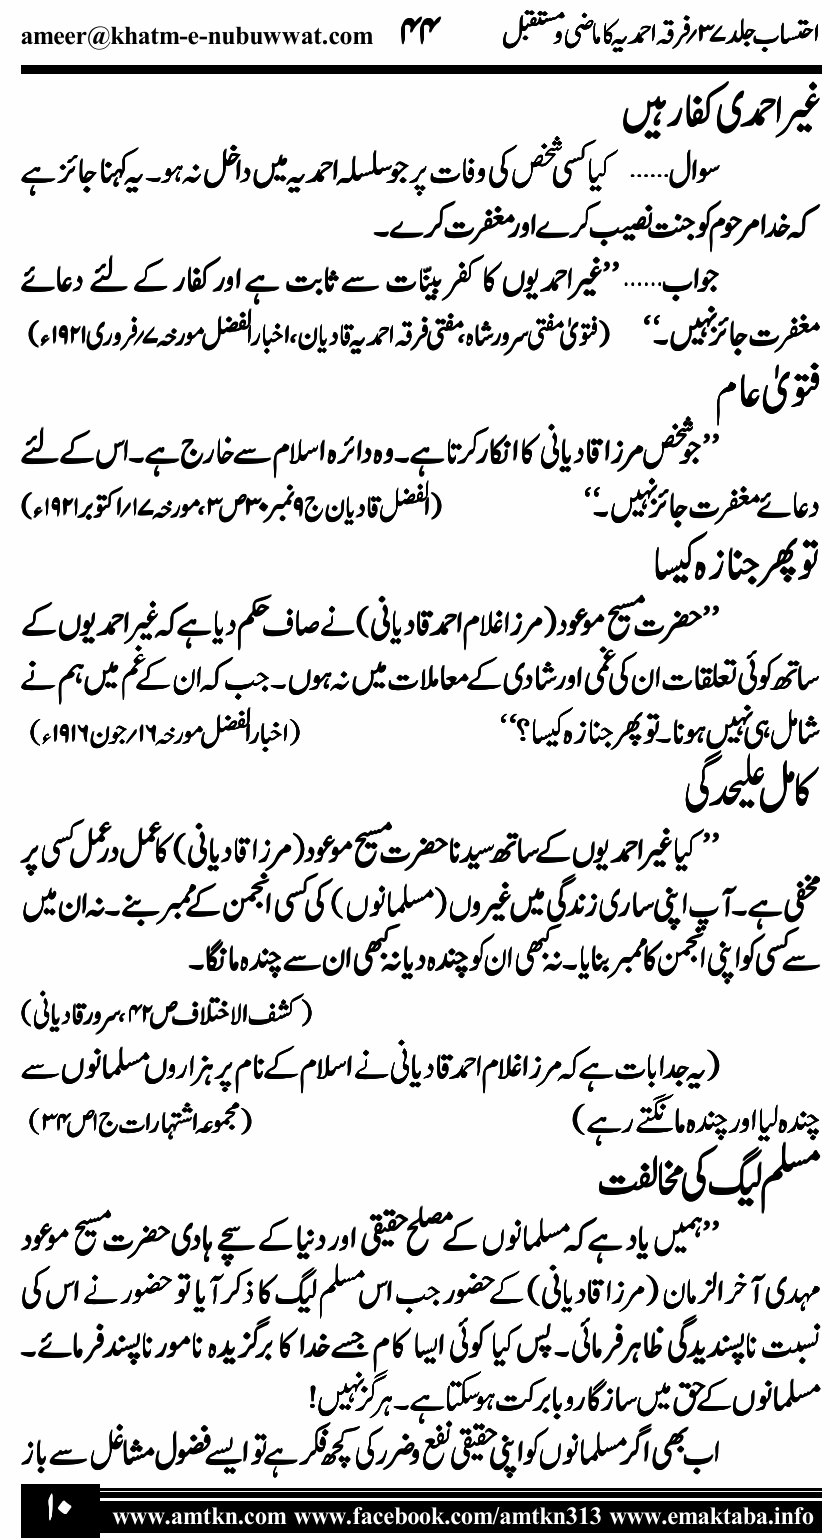 ameer@khatm-e-nubuwwat.com ۴۴ احتساب جلد ۳۷؍فرقہ احمدیہ کا ماضی و مستقبل
غیر احمدی کفار ہیں
سوال...... کیا کسی شخص کی وفات پر جو سلسلہ احمدیہ میں داخل نہ ہو۔ یہ کہنا جائز ہے
کہ خدا مرحوم کو جنت نصیب کرے اور مغفرت کرے۔
جواب...... ’’غیر احمدیوں کا کفر بیّنات سے ثابت ہے اور کفار کے لئے دعائے
مغفرت جائز نہیں۔‘‘ (فتویٰ مفتی سرور شاہ، مفتی فرقہ احمدیہ قادیان، اخبار الفضل مورخہ ۷؍فروری ۱۹۲۱ء)
فتویٰ عام
’’جو شخص مرزا قادیانی کا انکار کرتا ہے۔ وہ دائرہ اسلام سے خارج ہے۔ اس کے لئے
دعائے مغفرت جائز نہیں۔‘‘ (الفضل قادیان ج۹ نمبر۳۰ ص۳، مورخہ ۱۷؍اکتوبر ۱۹۲۱ء)
تو پھر جنازہ کیسا
’’حضرت مسیح موعود (مرزا غلام احمد قادیانی) نے صاف حکم دیا ہے کہ غیر احمدیوں کے
ساتھ کوئی تعلقات ان کی غمی اور شادی کے معاملات میں نہ ہوں۔ جب کہ ان کے غم میں ہم نے
شامل ہی نہیں ہونا۔ تو پھر جنازہ کیسا؟‘‘ (اخبار الفضل مورخہ ۱۶؍جون ۱۹۱۶ء)
کامل علیحدگی
’’کیا غیر احمدیوں کے ساتھ سیدنا حضرت مسیح موعود (مرزا قادیانی) کا عمل در عمل کسی پر
مخفی ہے۔ آپ اپنی ساری زندگی میں غیروں (مسلمانوں) کی کسی انجمن کے ممبر بنے۔ نہ ان میں
سے کسی کو اپنی انجمن کا ممبر بنایا۔ نہ کبھی ان کو چندہ دیا نہ کبھی ان سے چندہ مانگا۔
(کشف الاختلاف ص۴۲، سرور قادیانی)
(یہ جدا بات ہے کہ مرزا غلام احمد قادیانی نے اسلام کے نام پر ہزاروں مسلمانوں سے
چندہ لیا اور چندہ مانگتے رہے) (مجموعہ اشتہارات ج۱ ص۳۴)
مسلم لیگ کی مخالفت
’’ہمیں یاد ہے کہ مسلمانوں کے مصلح حقیقی اور دنیا کے سچے ہادی حضرت مسیح موعود
مہدی آخر الزمان (مرزا قادیانی) کے حضور جب اس مسلم لیگ کا ذکر آیا تو حضور نے اس کی
نسبت ناپسندیدگی ظاہر فرمائی۔ پس کیا کوئی ایسا کام جسے خدا کا برگزیدہ نامور ناپسند فرمائے۔
مسلمانوں کے حق میں سازگار و بابرکت ہو سکتا ہے۔ ہرگز نہیں!
اب بھی اگر مسلمانوں کو اپنی حقیقی نفع و ضرر کی کچھ فکر ہے تو ایسے فضول مشاغل سے باز
۱۰ www.amtkn.com www.facebook.com/amtkn313 www.emaktaba.info